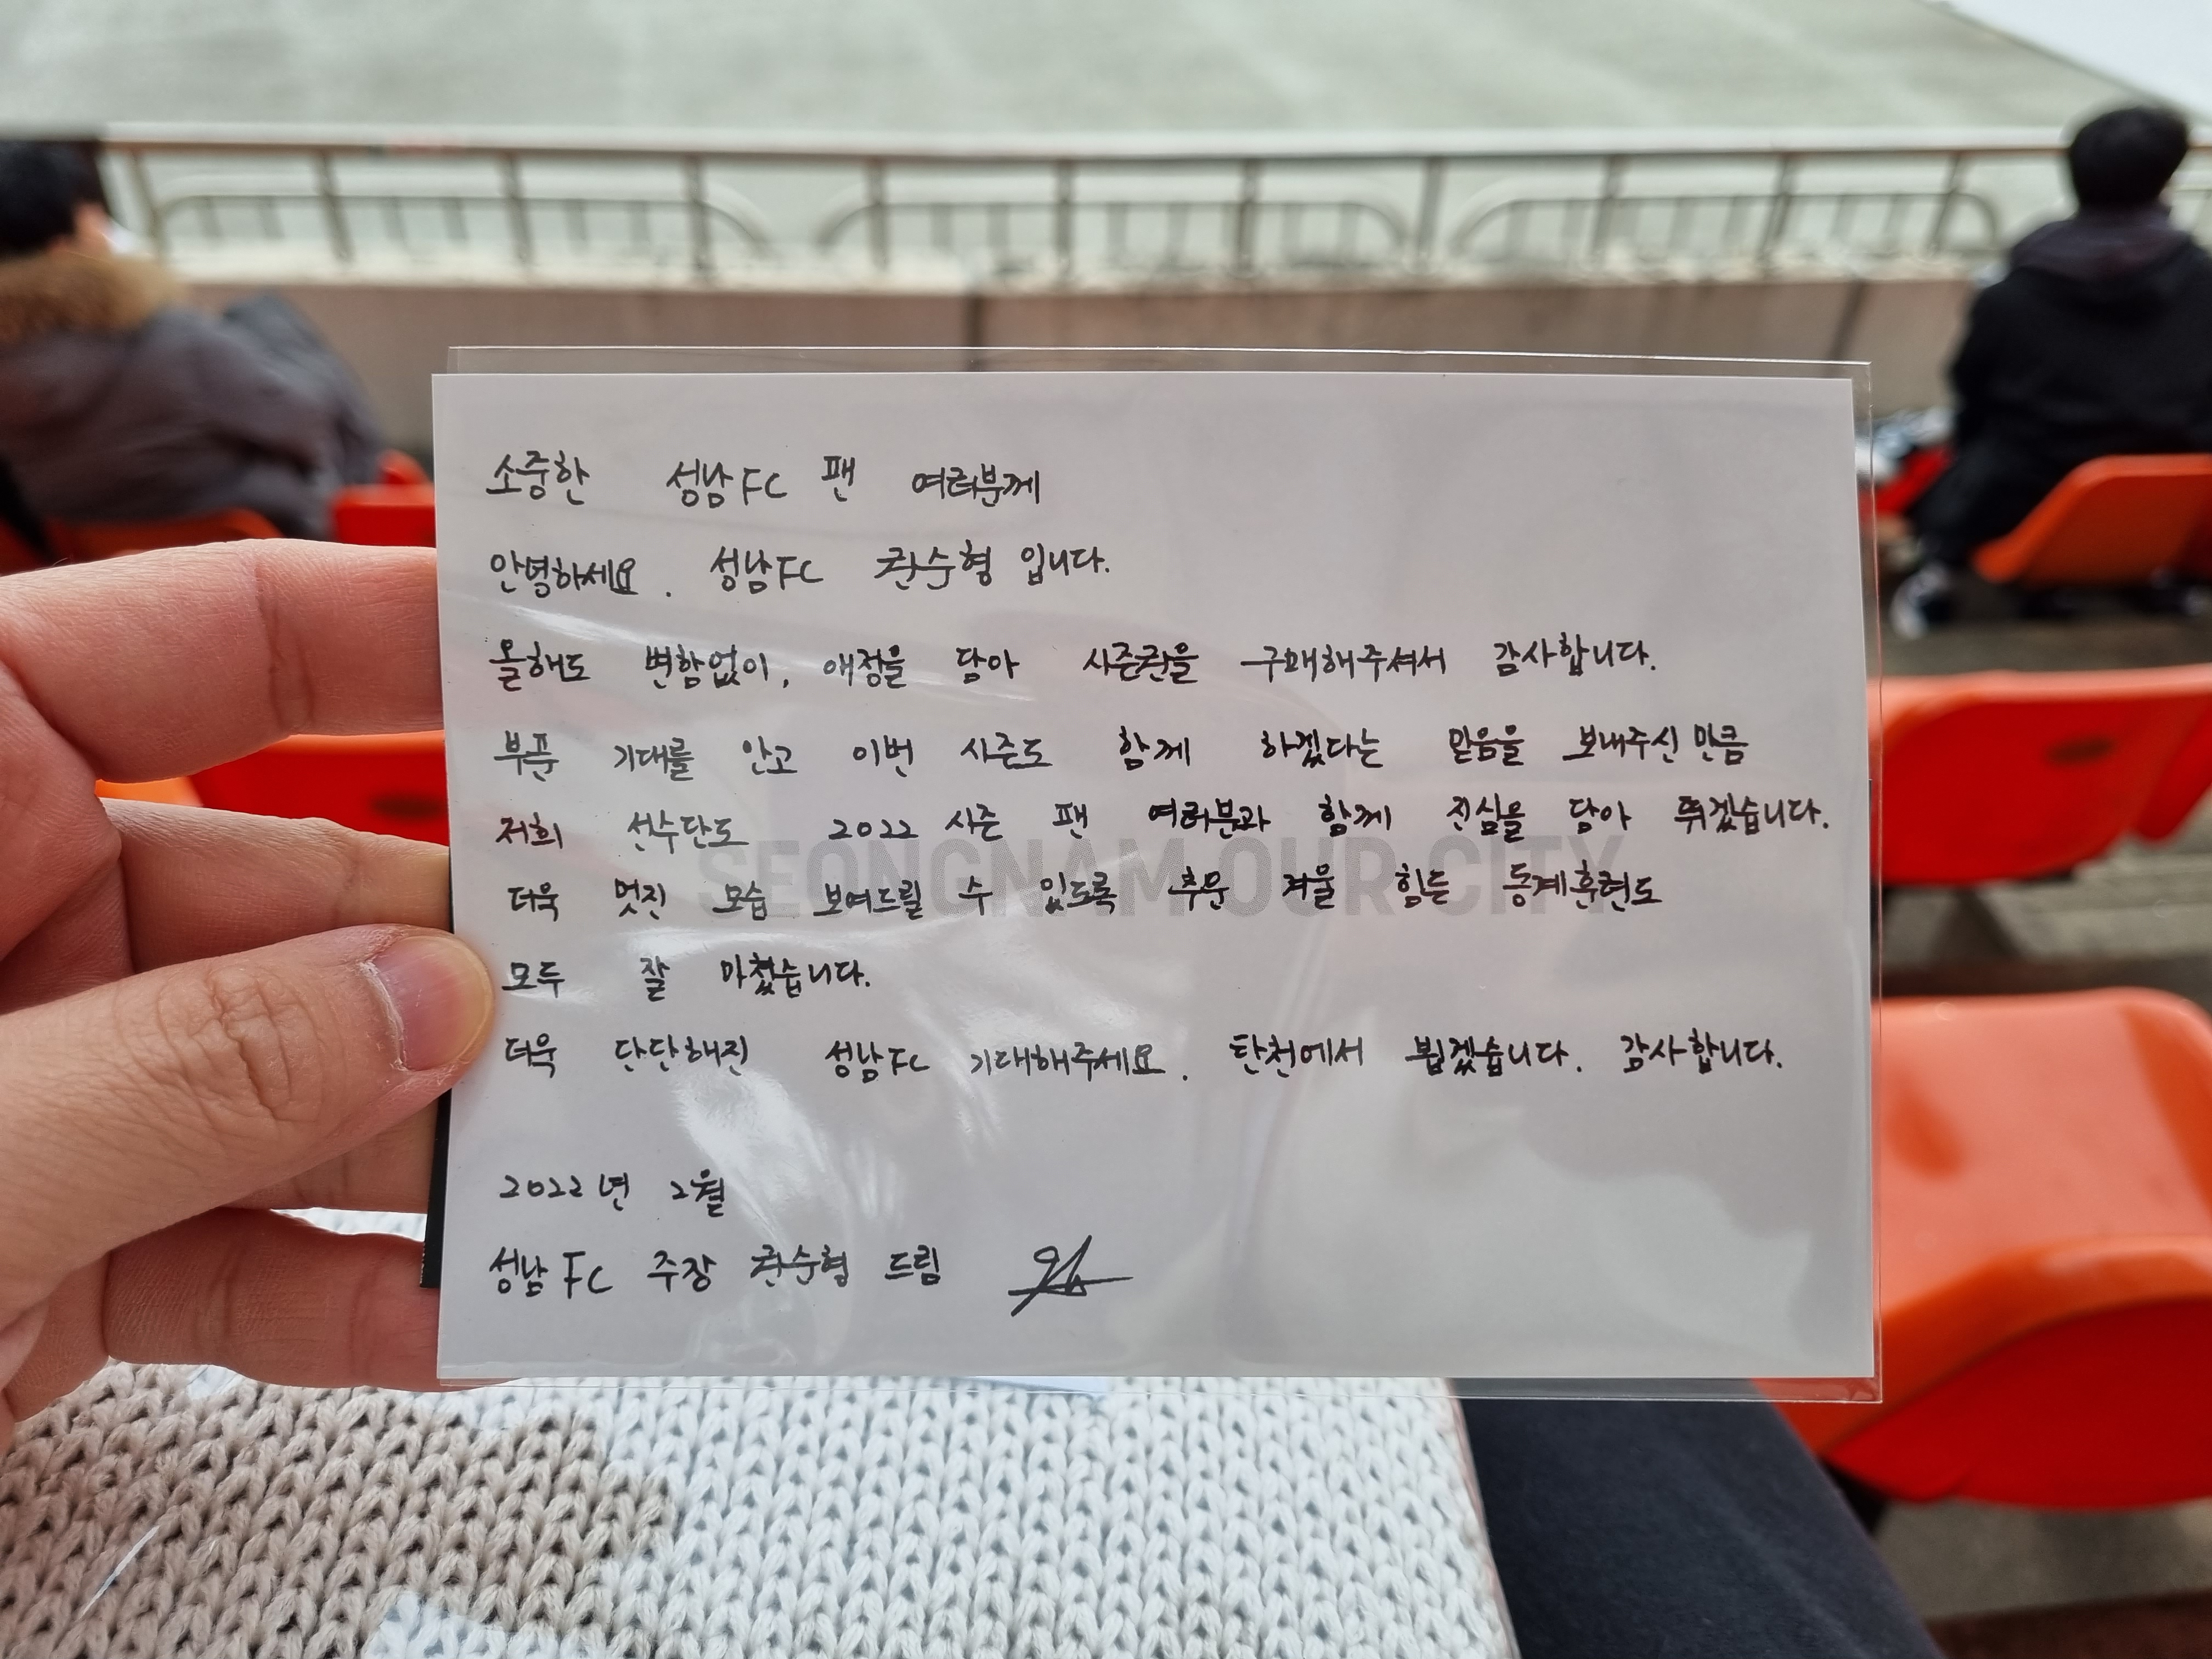 소중한 성남FC 팬 여러분께
안녕하세요. 성남FC 권순형 입니다.
올해도 변함없이, 애정을 담아 시즌권을 구매해주셔서 감사합니다.
부푼 기대를 안고 이번 시즌도 함께 하겠다는 믿음을 보내주신 만큼
저희 선수단도 2022 시즌 팬 여러분과 함께 진심을 담아 뛰겠습니다.
SEONGNAM OUR CITY
더욱 멋진 모습 보여드릴 수 있도록 추운 겨울 힘든 동계훈련도
모두 잘 마쳤습니다.
더욱 단단해진 성남FC 기대해주세요. 탄천에서 뵙겠습니다. 감사합니다.
2022년 2월
성남FC 주장 권순형 드림